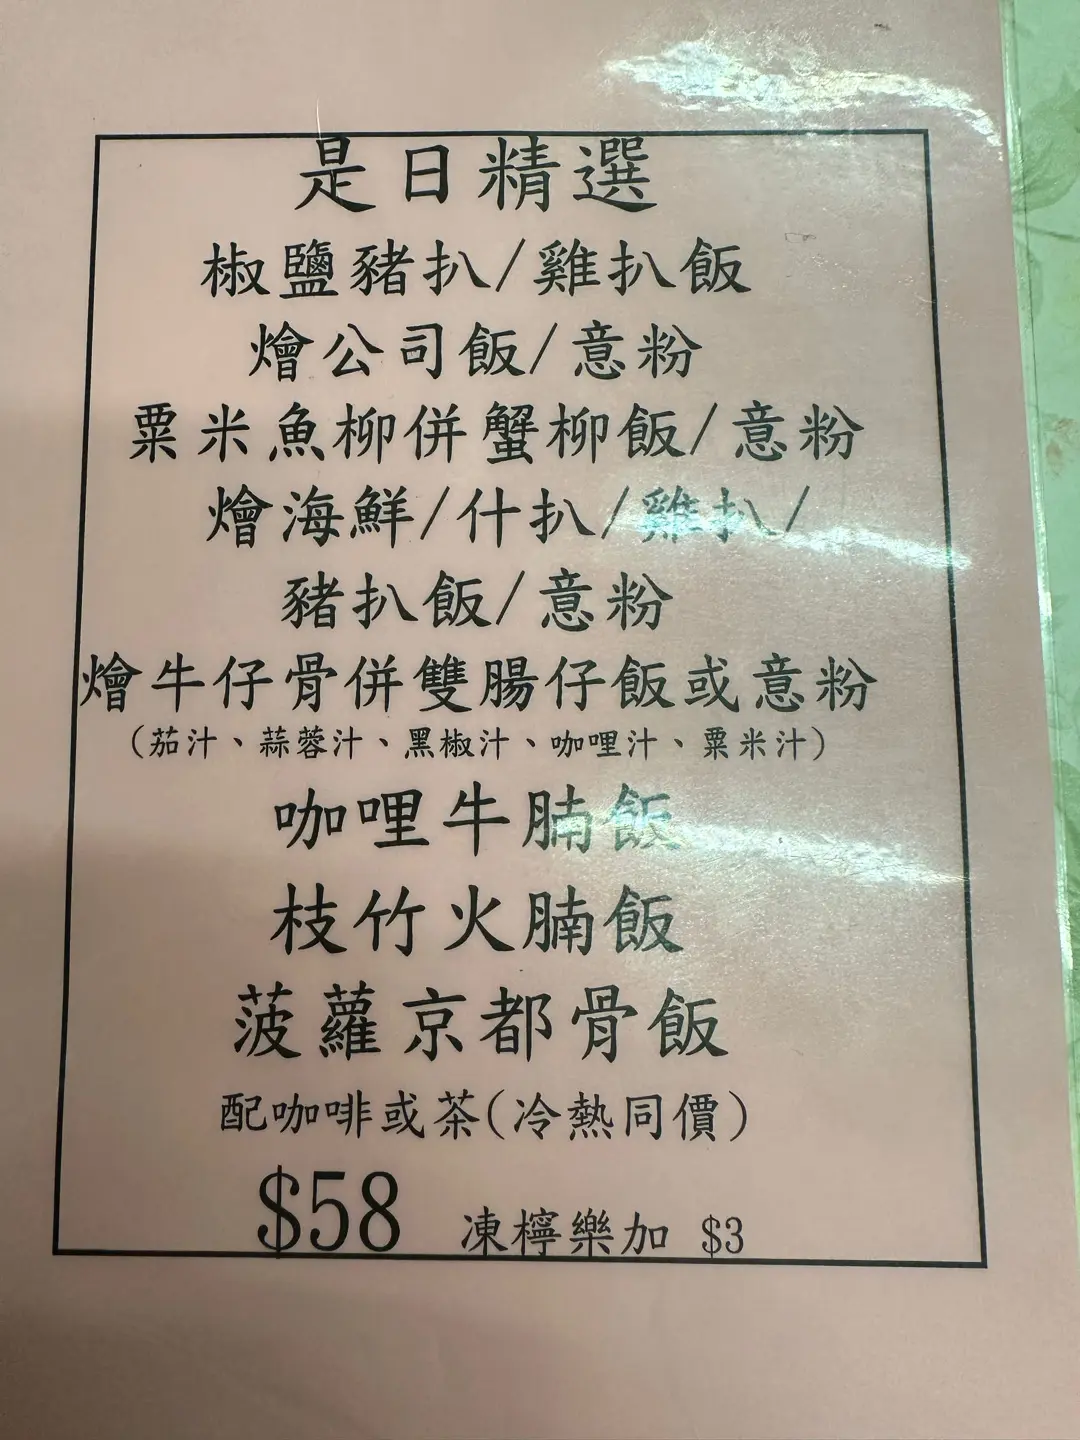 是日精選
椒鹽豬扒/雞扒飯
燴公司飯/意粉
粟米魚柳併蟹柳飯/意粉
燴海鮮/什扒/雞扒/
豬扒飯/意粉
燴牛仔骨併雙腸仔飯或意粉
(茄汁、蒜蓉汁、黑椒汁、咖哩汁、粟米汁)
咖哩牛腩飯
枝竹火腩飯
菠蘿京都骨飯
配咖啡或茶(冷熱同價)
$58 凍檸樂加 $3